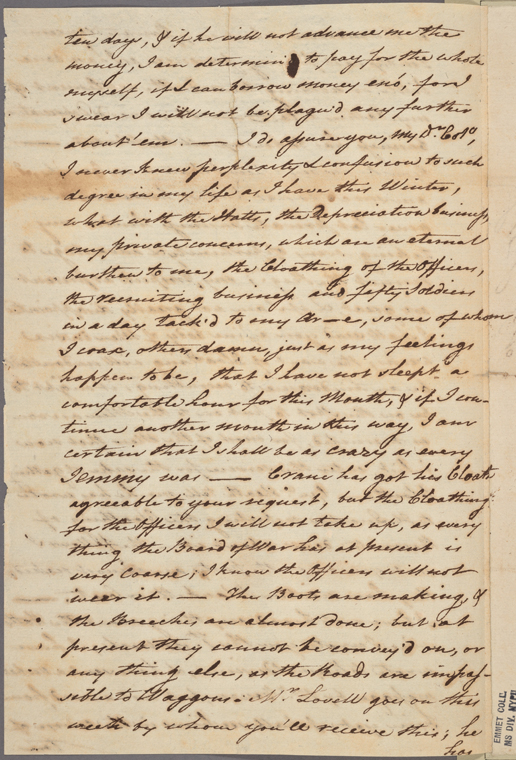 ten days, & if he will not advance me the
money, I am determin'd to pay for the whole
myself, if I can borrow money eno', for I
swear I will not be plagu'd any further
about 'em. — I do assure you, my Dr. Colo,
I never knew perplexity & confusion to such
degree in my life as I have this Winter,
what with the Hatts, the Depreciation business,
my private concerns, which are an eternal
burthen to me, the Cloathing of the Officers,
the recruiting business and fifty Soldiers
in a day tack'd to my Ar—e, some of whom
I coax, others damn, just as my feelings
happen to be, that I have not slept a
comfortable hour for this Month, & if I con-
tinue another month in this way, I am
certain that I shall be as crazy as every
Jemmy was — Crane has got his Cloath
agreeable to your request, but the Cloathing
for the Officers I will not take up, as every
thing the Board of War has at present is
very coarse; I know the Officers will not
wear it. — The Boots are making, &
the Breeches are almost done; but at
present they cannot be convey'd on, or
any thing else, as the Roads are impas-
sible to Waggons. Mr. Lovell goes on this
week by whom you'll receive this; he
has
EMMET COLL.
MS DIV. NYPL